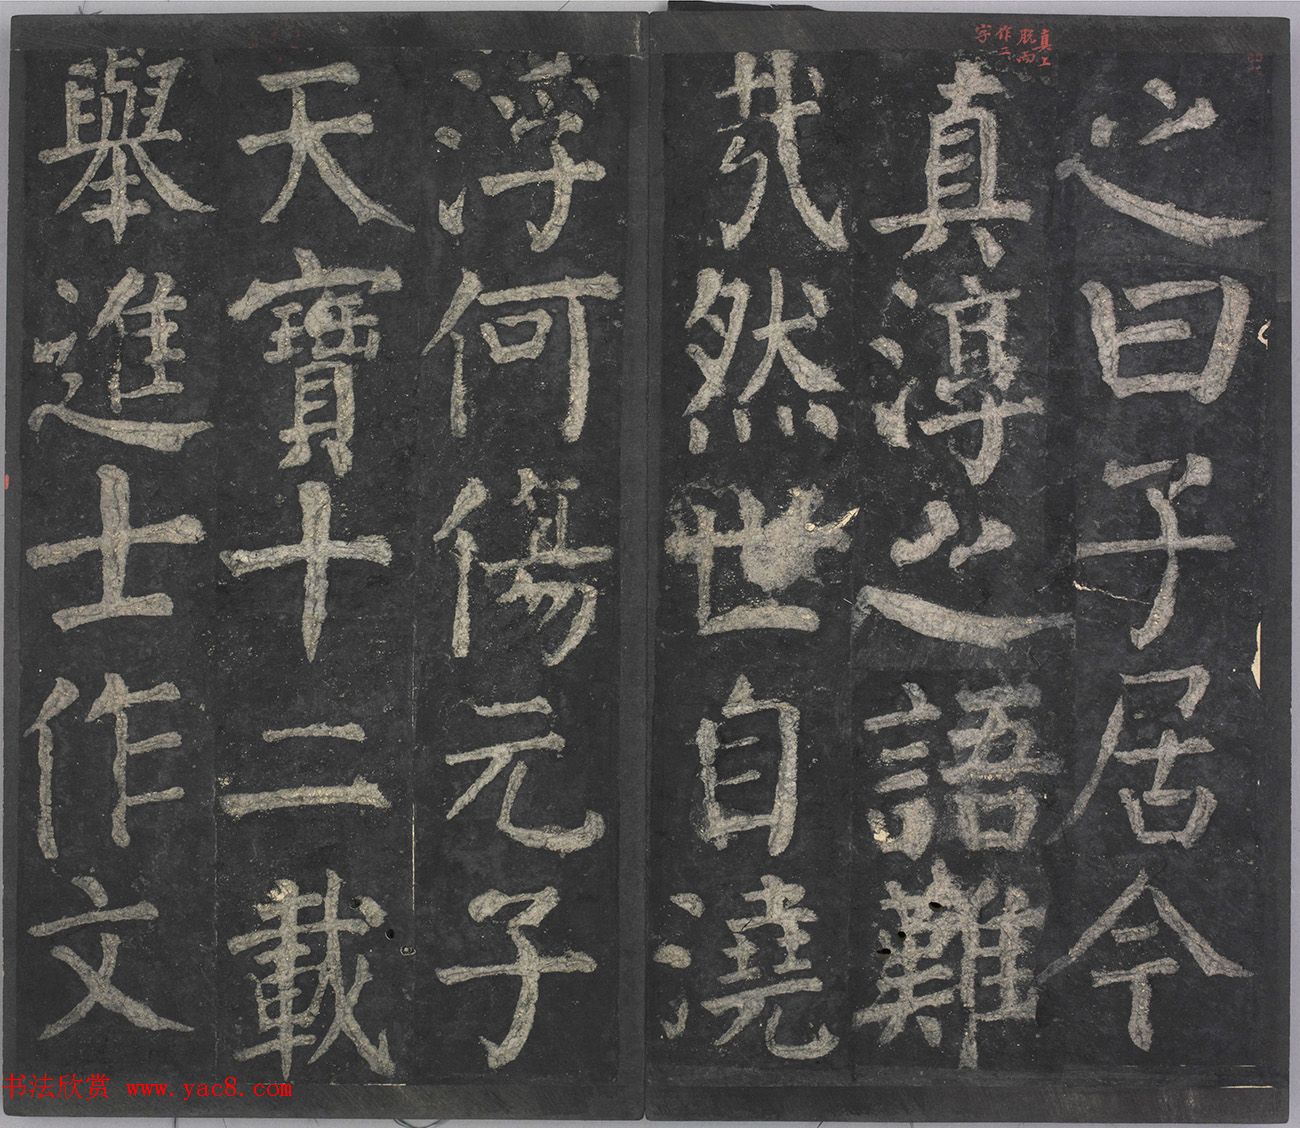 之曰子居今
真淳之語難
哉然世自澆
浮何傷元子
天寶十二載
舉進士作文
真上
脫而
作二
字
书法欣赏 www.yac8.com